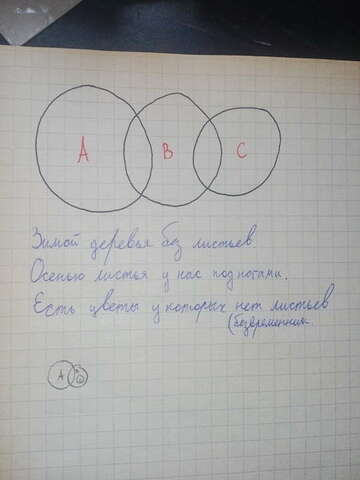 A B C
Зимой деревья без листьев
Осенью листья у нас под ногами.
Есть цветы у которых нет листьев
(безвременник
A